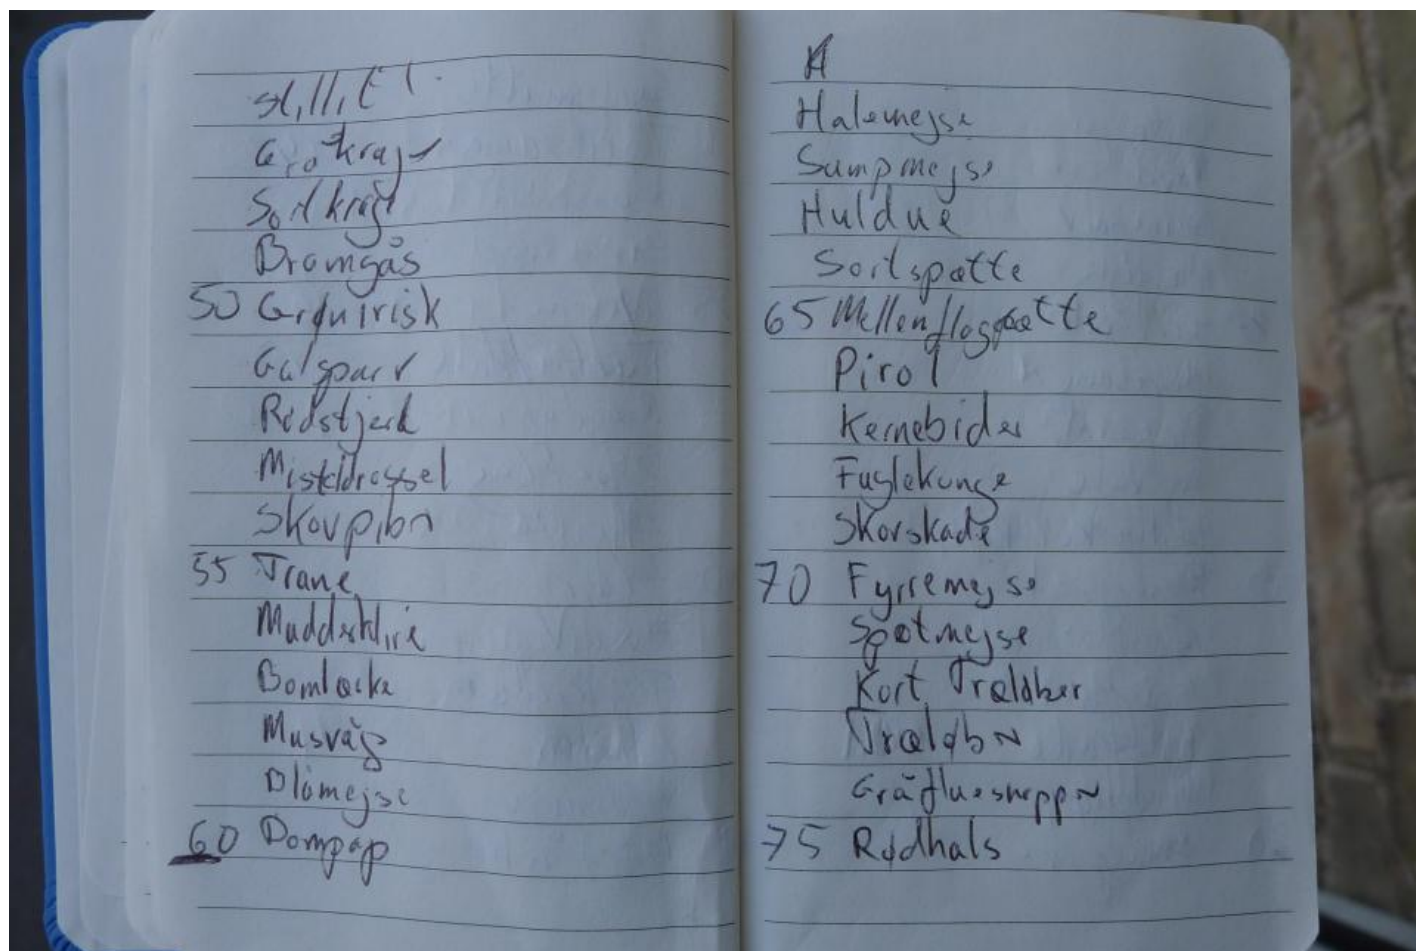 Stillit
Gråkrage
Sortkrage
Bramgås
50 Grønirisk
Gulspurv
Rødstjert
Misteldrossel
Skovpiber
55 Trane
Mudderklire
Bomlærke
Musvåg
Blåmejse
60 Dompap
Halemejse
Sumpmejse
Huldue
Sortspætte
65 Mellemflagspætte
Pirol
Kernebider
Fuglekonge
Skovskade
70 Fyrremejse
Spætmejse
Kort Træløber
Træløber
Gråfluesnapper
75 Rødhals